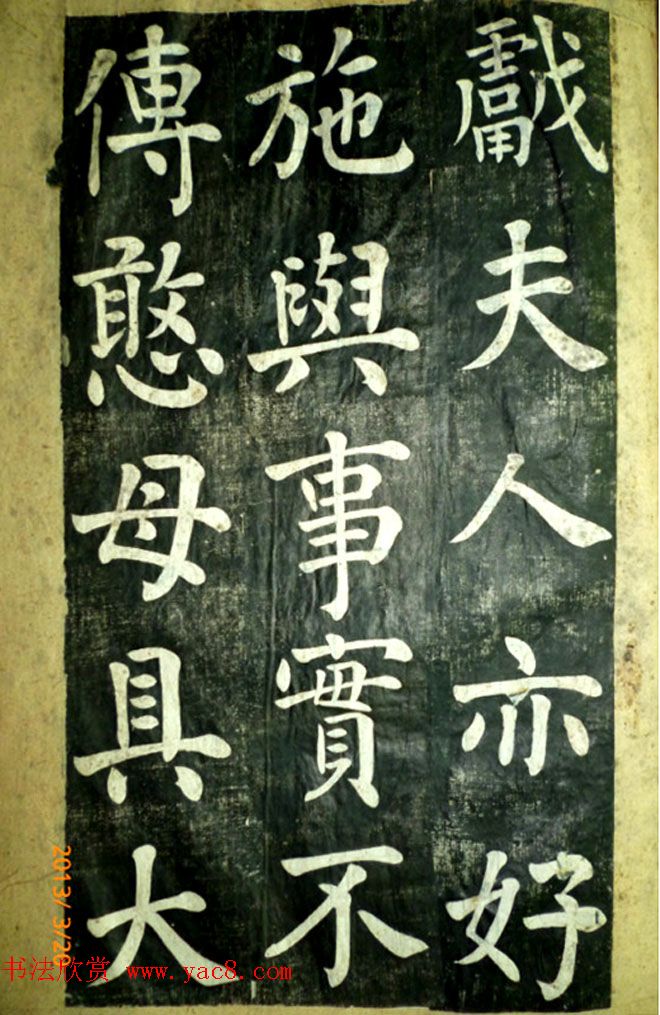 戲夫人亦好
施與事實不
傳憨母具大
2013/ 3/20
书法欣赏 www.yac8.com